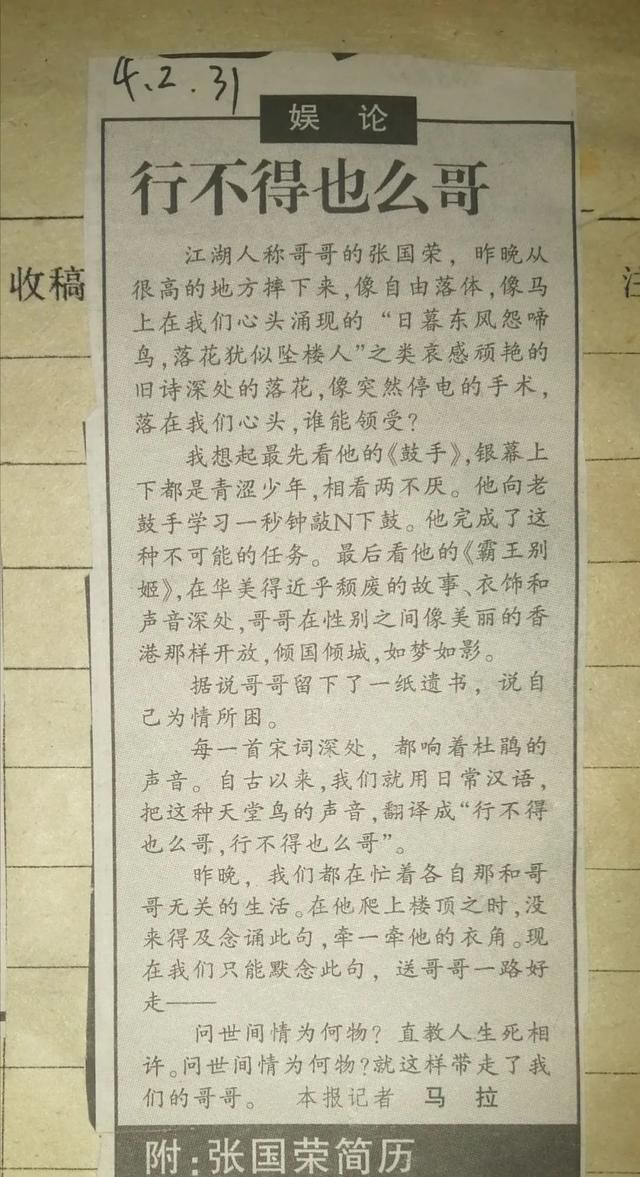 4.2.31
娱 论
行不得也么哥
收稿
江湖人称哥哥的张国荣，昨晚从
很高的地方摔下来，像自由落体，像马
上在我们心头涌现的“日暮东风怨啼
鸟，落花犹似坠楼人”之类哀感顽艳的
旧诗深处的落花，像突然停电的手术，
落在我们心头，谁能领受？
我想起最先看他的《鼓手》，银幕上
下都是青涩少年，相看两不厌。他向老
鼓手学习一秒钟敲N下鼓。他完成了这
种不可能的任务。最后看他的《霸王别
姬》，在华美得近乎颓废的故事、衣饰和
声音深处，哥哥在性别之间像美丽的香
港那样开放，倾国倾城，如梦如影。
据说哥哥留下了一纸遗书，说自
己为情所困。
每一首宋词深处，都响着杜鹃的
声音。自古以来，我们就用日常汉语，
把这种天堂鸟的声音，翻译成“行不得
也么哥，行不得也么哥”。
昨晚，我们都在忙着各自那和哥
哥无关的生活。在他爬上楼顶之时，没
来得及念诵此句，牵一牵他的衣角。现
在我们只能默念此句，送哥哥一路好
走——
问世间情为何物？直教人生死相
许。问世间情为何物？就这样带走了我
们的哥哥。 本报记者 马 拉
附：张国荣简历